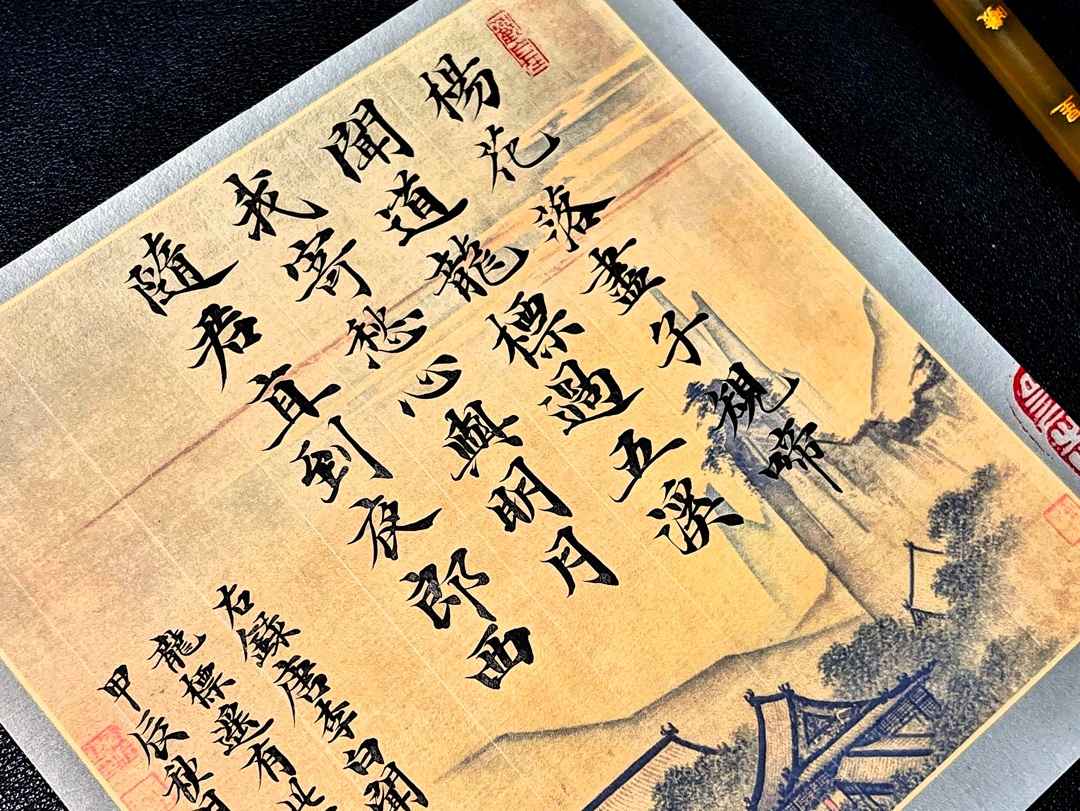 楊花落盡子規啼
聞道龍標過五溪
我寄愁心與明月
隨君直到夜郎西
右錄唐李白聞
龍標遙有此
甲辰秋月